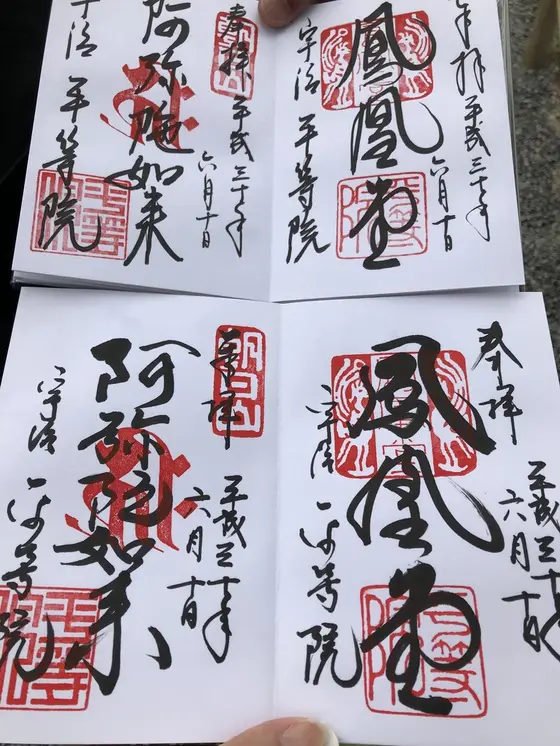 奉拝 平成三十年
六月十日
鳳凰堂
宇治 平等院
奉拝 平成三十年
六月十日
阿弥陀如来
宇治 平等院
奉拝 平成三十年
六月十日
鳳凰堂
宇治 平等院
朝日山
奉拝 平成三十年
六月十日
阿弥陀如来
宇治 平等院